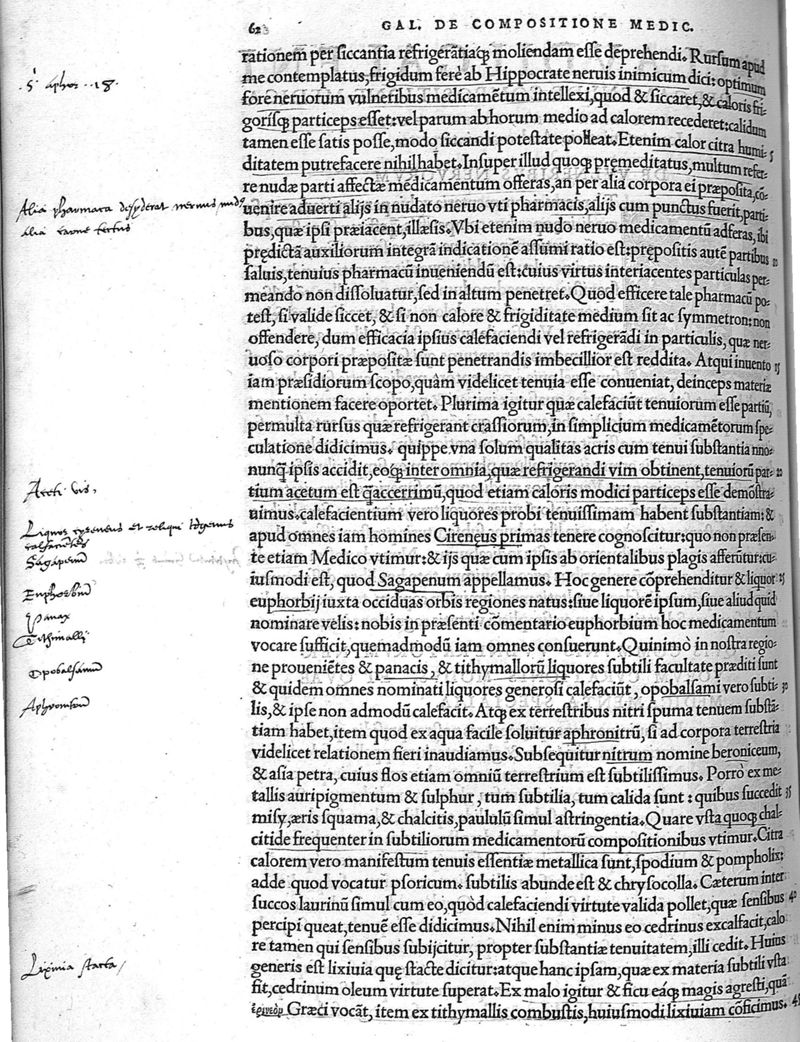 62
GAL. DE COMPOSITIONE MEDIC.
rationem per siccantia refrigerãtiaq́; moliendam esse deprehendi. Rursum apud
me contemplatus, frigidum ferè ab Hippocrate neruis inimicum dici: optimum
fore neruorum vulneribus medicamẽtum intellexi, quod & siccaret, & caloris fri-
gorisq́; particeps esset: vel parum ab horum medio ad calorem recederet: calidum
tamen esse satis posse, modo siccandi potestate polleat. Etenim calor citra humi- 5
ditatem putrefacere nihil habet. Insuper illud quoq; pręmeditatus, multum refer-
re nudæ parti affectæ medicamentum offeras, an per alia corpora ei præposita, cõ-
uenire aduerti alijs in nudato neruo vti pharmacis, alijs cum punctus fuerit, parti-
bus, quæ ipsi præiacent, illæsis. Vbi etenim nudo neruo medicamentũ adferas, ibi
prędictã auxiliorum integrã indicationẽ assumi ratio est: prępositis autẽ partibus 10
saluis, tenuius pharmacũ inueniendũ est: cuius virtus interiacentes particulas per-
meando non dissoluatur, sed in altum penetret. Quod efficere tale pharmacũ po-
test, si valide siccet, & si non calore & frigiditate medium sit ac symmetron: non
offendere, dum efficacia ipsius calefaciendi vel refrigerãdi in particulis, quæ ner-
uoso corpori præpositæ sunt penetrandis imbecillior est reddita. Atqui inuento 15
iam præsidiorum scopo, quàm videlicet tenuia esse conueniat, deinceps materiæ
mentionem facere oportet. Plurima igitur quæ calefaciũt tenuiorum esse partiũ,
permulta rursus quæ refrigerant crassiorum, in simplicium medicamẽtorum spe-
culatione didicimus. quippe vna solum qualitas acris cum tenui substantia nno-
nunq̃ ipsis accidit, eoq́; inter omnia, quæ refrigerandi vim obtinent, tenuiorũ par- 20
tium acetum est q̃acerrimũ, quod etiam caloris modici particeps esse demõstra-
uimus. calefacientium vero liquores probi tenuissimam habent substantiam: &
apud omnes iam homines Cireneus primas tenere cognoscitur: quo non præsen-
te etiam Medico vtimur: & ijs quæ cum ipsis ab orientalibus plagis afferũtur: cu-
iusmodi est, quod Sagapenum appellamus. Hoc genere cõprehenditur & liquor 25
euphorbij iuxta occiduas orbis regiones natus: siue liquorẽ ipsum, siue aliud quid
nominare velis: nobis in præsenti cõmentario euphorbium hoc medicamentum
vocare sufficit, quemadmodũ iam omnes consuerunt. Quinimò in nostra regio-
ne proueniẽtes & panacis, & tithymallorũ liquores subtili facultate præditi sunt 30
& quidem omnes nominati liquores generosi calefaciũt, opobalsami vero subti-
lis, & ipse non admodũ calefacit. Atq; ex terrestribus nitri spuma tenuem substã-
tiam habet, item quod ex aqua facile soluitur aphronitrũ, si ad corpora terrestria
videlicet relationem fieri inaudiamus. Subsequitur nitrum nomine beroniceum,
& asia petra, cuius flos etiam omniũ terrestrium est subtilissimus. Porrò ex me-
tallis auripigmentum & sulphur, tum subtilia, tum calida sunt: quibus succedit 35
misy, æris squama, & chalcitis, paululũ simul astringentia. Quare vsta quoq; chal-
citide frequenter in subtiliorum medicamentorũ compositionibus vtimur. Citra
calorem vero manifestum tenuis essentiæ metallica sunt, spodium & pompholix:
adde quod vocatur psoricum. subtilis abunde est & chrysocolla. Cæterum inter
succos laurinũ simul cum eo, quòd calefaciendi virtute valida pollet, quæ sensibus 40
percipi queat, tenuẽ esse didicimus. Nihil enim minus eo cedrinus excalfacit, calo
re tamen qui sensibus subijcitur, propter substantiæ tenuitatem, illi cedit. Huius
generis est lixiuia quę stacte dicitur: atque hanc ipsam, quæ ex materia subtili vsta
fit, cedrinum oleum virtute superat. Ex malo igitur & ficu eáq; magis agresti, quã
ἐρινεὸρ Græci vocãt, item ex tithymallis combustis, huiusmodi lixiuiam cõficimus. 45
5 aphor. 18.
Alia pharmaca desyderat neruus nud⁹
alia carne tectus
Aceti vis,
Liquor cyreneus et reliqui
Sagapenũ
Euphorbiũ
Panax
Tithimalli
Opobalsamũ
Lixiuia stacta